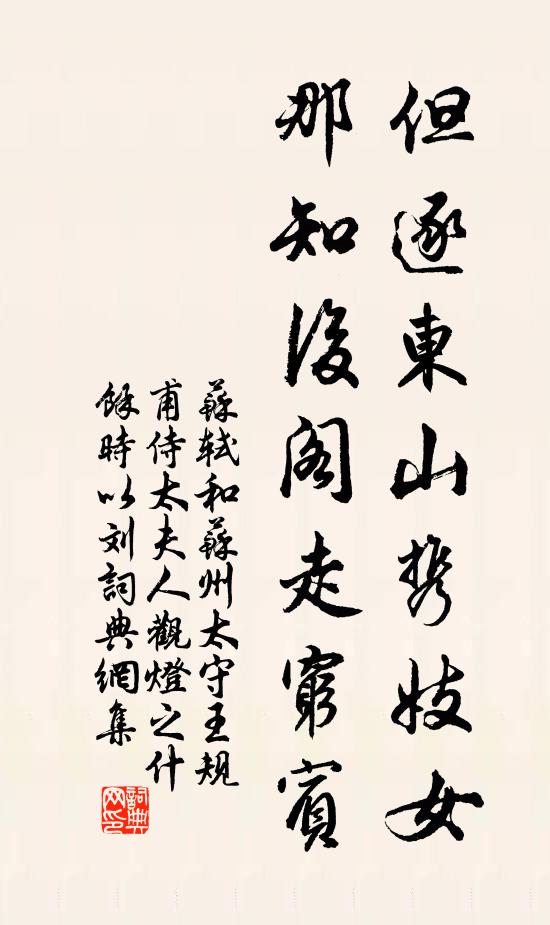 但逐東山携妓女
那知後阁走窮賓
蘇軾和蘇州太守王規
甫侍太夫人觀燈之什
餘時以刘詞典網集
詞典
网印